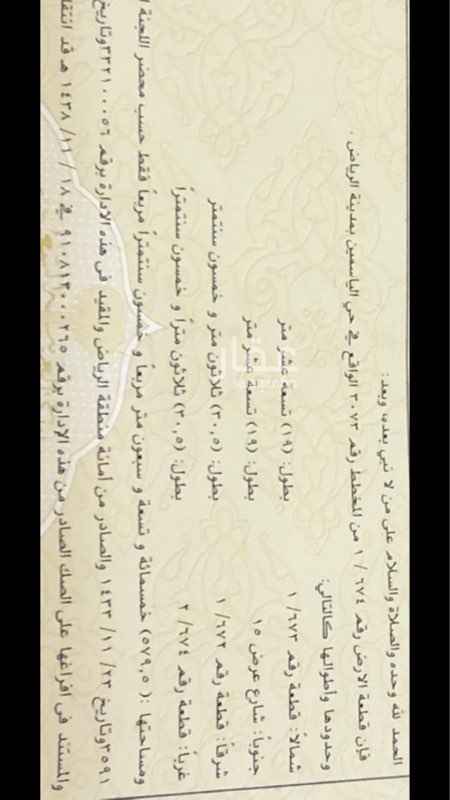 الحمد لله وحده والصلاة والسلام على من لا نبي بعده، وبعد:
فإن قطعة الارض رقم ٦٧٤ / ١ من المخطط رقم ٣٠٧٣ الواقع في حي الياسمين بمدينة الرياض .
وحدودها وأطوالها كالتالي:
شمالاً: قطعة رقم ٦٧٣/ ١ بطول: (١٩) تسعة عشر متر
جنوباً: شارع عرض ١٥ بطول: (١٩) تسعة عشر متر
شرقاً: قطعة رقم ٦٧٢/ ١ بطول: (٣٠,٥) ثلاثون متر و خمسون سنتمتر
غرباً: قطعة رقم ٦٧٤/ ٢ بطول: (٣٠,٥) ثلاثون متراً و خمسون سنتمتراً
ومساحتها :( ٥٧٩,٥) خمسمائة و تسعة و سبعون متر مربعاً و خمسون سنتمتراً مربعاً فقط حسب محضر اللجنة
٣٥٩١ وتاريخ ٢٣/ ١١/ ١٤٣٣ والصادر من أمانة منطقة الرياض والمقيد في هذه الادارة برقم ٣٣٢١٠٠٠٥٦ وتاريخ
والمستند في افراغها على الصك الصادر من هذه الإدارة برقم ٩١٠٨١٣٠٠٠٢٦٥ في ١٨ / ١١/ ١٤٣٨ هـ قد
عقار